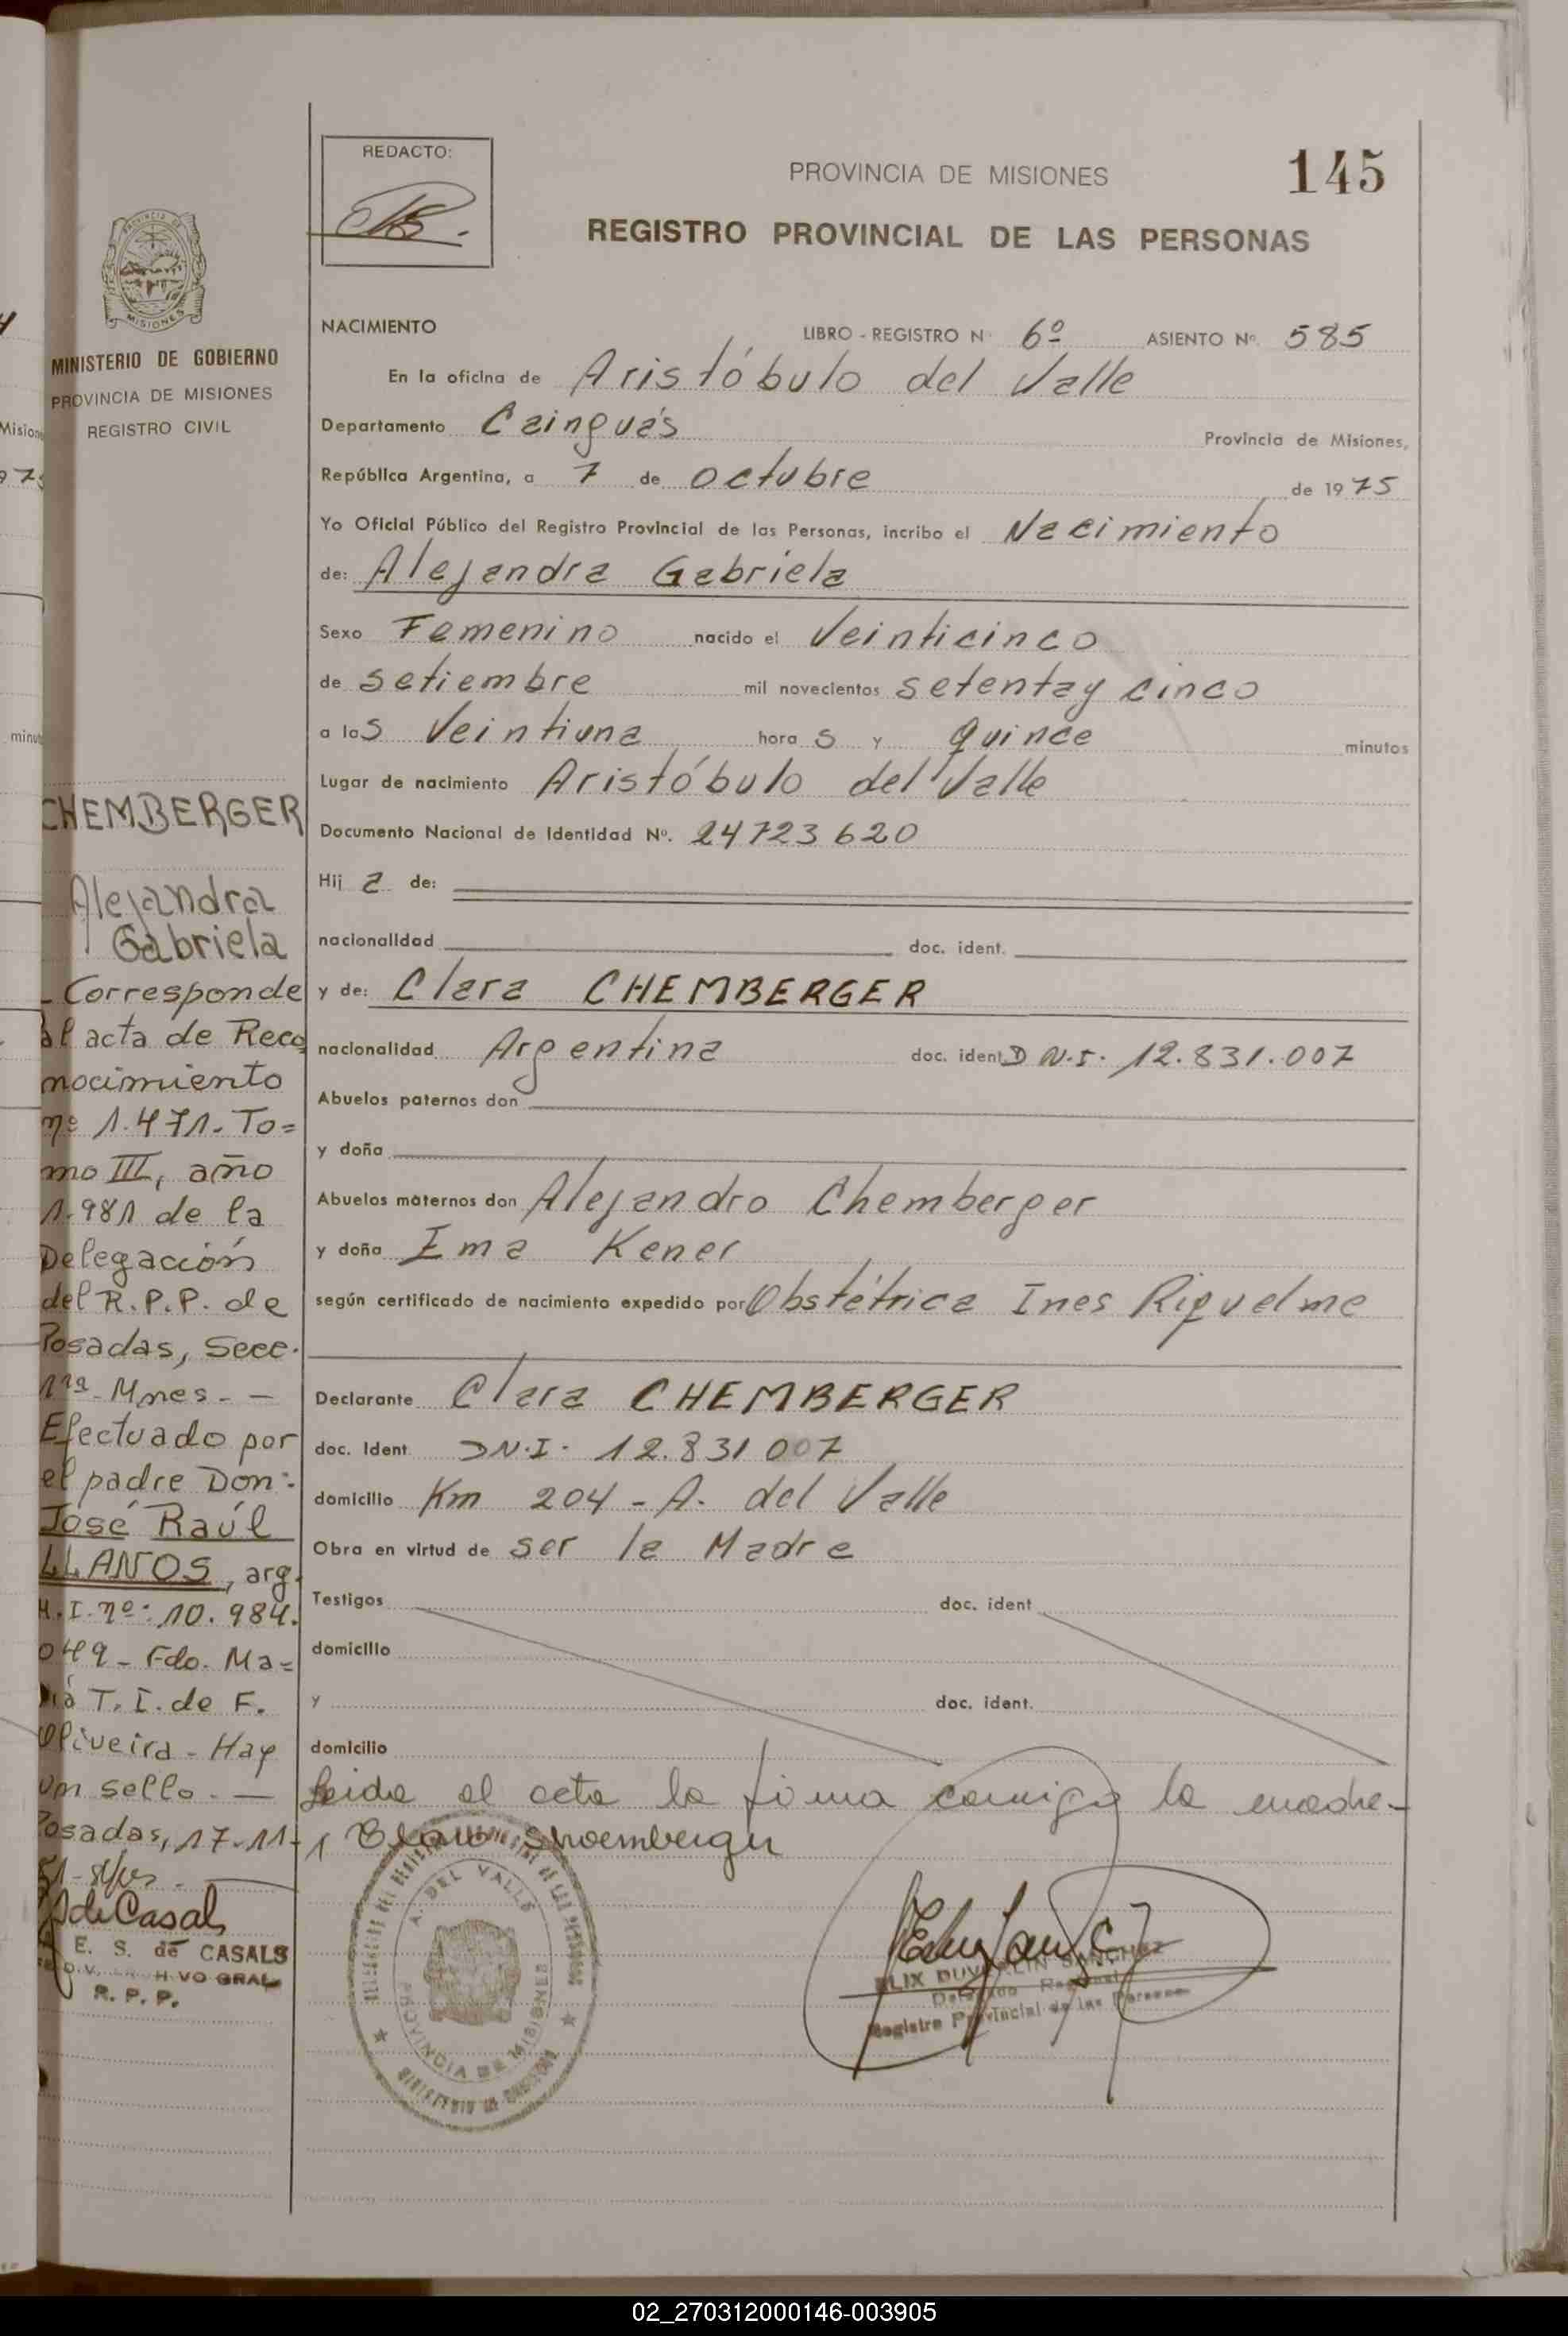 REDACTO:
PROVINCIA DE MISIONES
145
REGISTRO PROVINCIAL DE LAS PERSONAS
MINISTERIO DE GOBIERNO
PROVINCIA DE MISIONES
REGISTRO CIVIL
CHEMBERGER
Alejandra
Gabriela
- Corresponde
al acta de Reco
nocimiento
nº 1.471. To=
mo III, año
1.981 de la
Delegación
del R.P.P. de
Posadas, Secc.
1ra. Mnes. -
Efectuado por
el padre Don:
José Raúl
LLANOS, arg.
M.I. nº: 10.984.
049 - Fdo. Ma=
ría T. I. de F.
Oliveira - Hay
un sello. -
Posadas, 17-11-
E. S. de CASALS
R. P. P.
NACIMIENTO LIBRO - REGISTRO N 6º ASIENTO Nº. 585
En la oficina de Aristóbulo del Valle
Departamento Cainguás Provincia de Misiones,
República Argentina, a 7 de octubre de 1975
Yo Oficial Público del Registro Provincial de las Personas, incribo el Nacimiento
de: Alejandra Gabriela
Sexo Femenino nacido el Veinticinco
de setiembre mil novecientos setenta y cinco
a las Veintiuna horas y quince minutos
Lugar de nacimiento Aristóbulo del Valle
Documento Nacional de Identidad Nº. 24723620
Hija de:
nacionalidad doc. ident.
y de: Clara CHEMBERGER
nacionalidad Argentina doc. ident. D.N.I. 12.831.007
Abuelos paternos don
y doña
Abuelos maternos don Alejandro Chemberger
y doña Ema Kener
según certificado de nacimiento expedido por Obstétrica Ines Riquelme
Declarante Clara CHEMBERGER
doc. Ident. D.N.I. 12.831 007
domicilio Km 204 - A. del Valle
Obra en virtud de ser la Madre
Testigos doc. ident
domicilio
y doc. ident.
domicilio
Leida el acta la firma conmigo la madre-
A. DEL VALLE
PROVINCIA DE MISIONES
Delegado Regional
Registro Provincial de las Personas
02_270312000146-003905